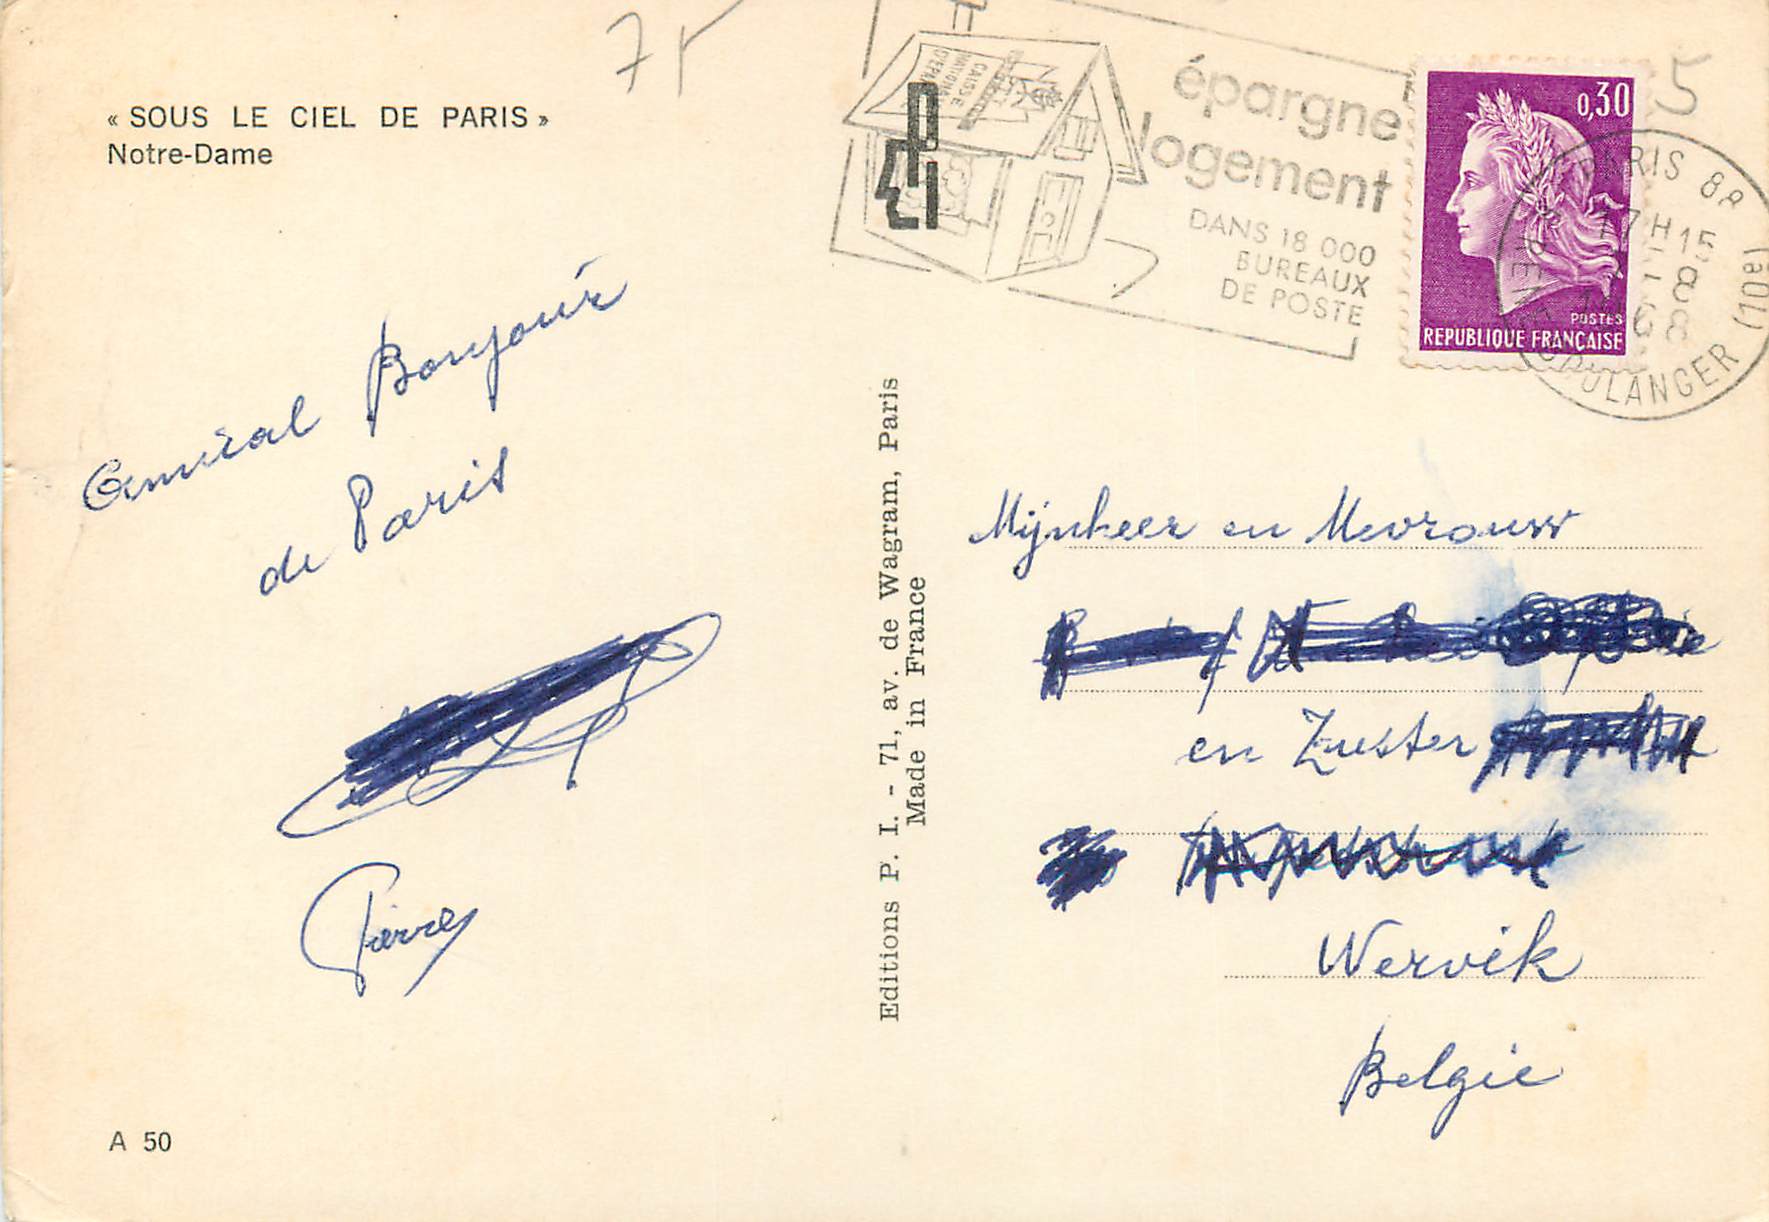 75
« SOUS LE CIEL DE PARIS »
Notre-Dame
Bonjour
de Paris
Pierre
A 50
Editions P. I. - 71, av. de Wagram, Paris
Made in France
CAISSE
NATIONALE
D'EPARGNE
épargne
logement
DANS 18 000
BUREAUX
DE POSTE
0,30
POSTES
REPUBLIQUE FRANÇAISE
5
PARIS 8R
17H15
8
1968
BOULANGER (10e)
Mijnheer en Mevrouw
en Zuster
Wervik
Belgie